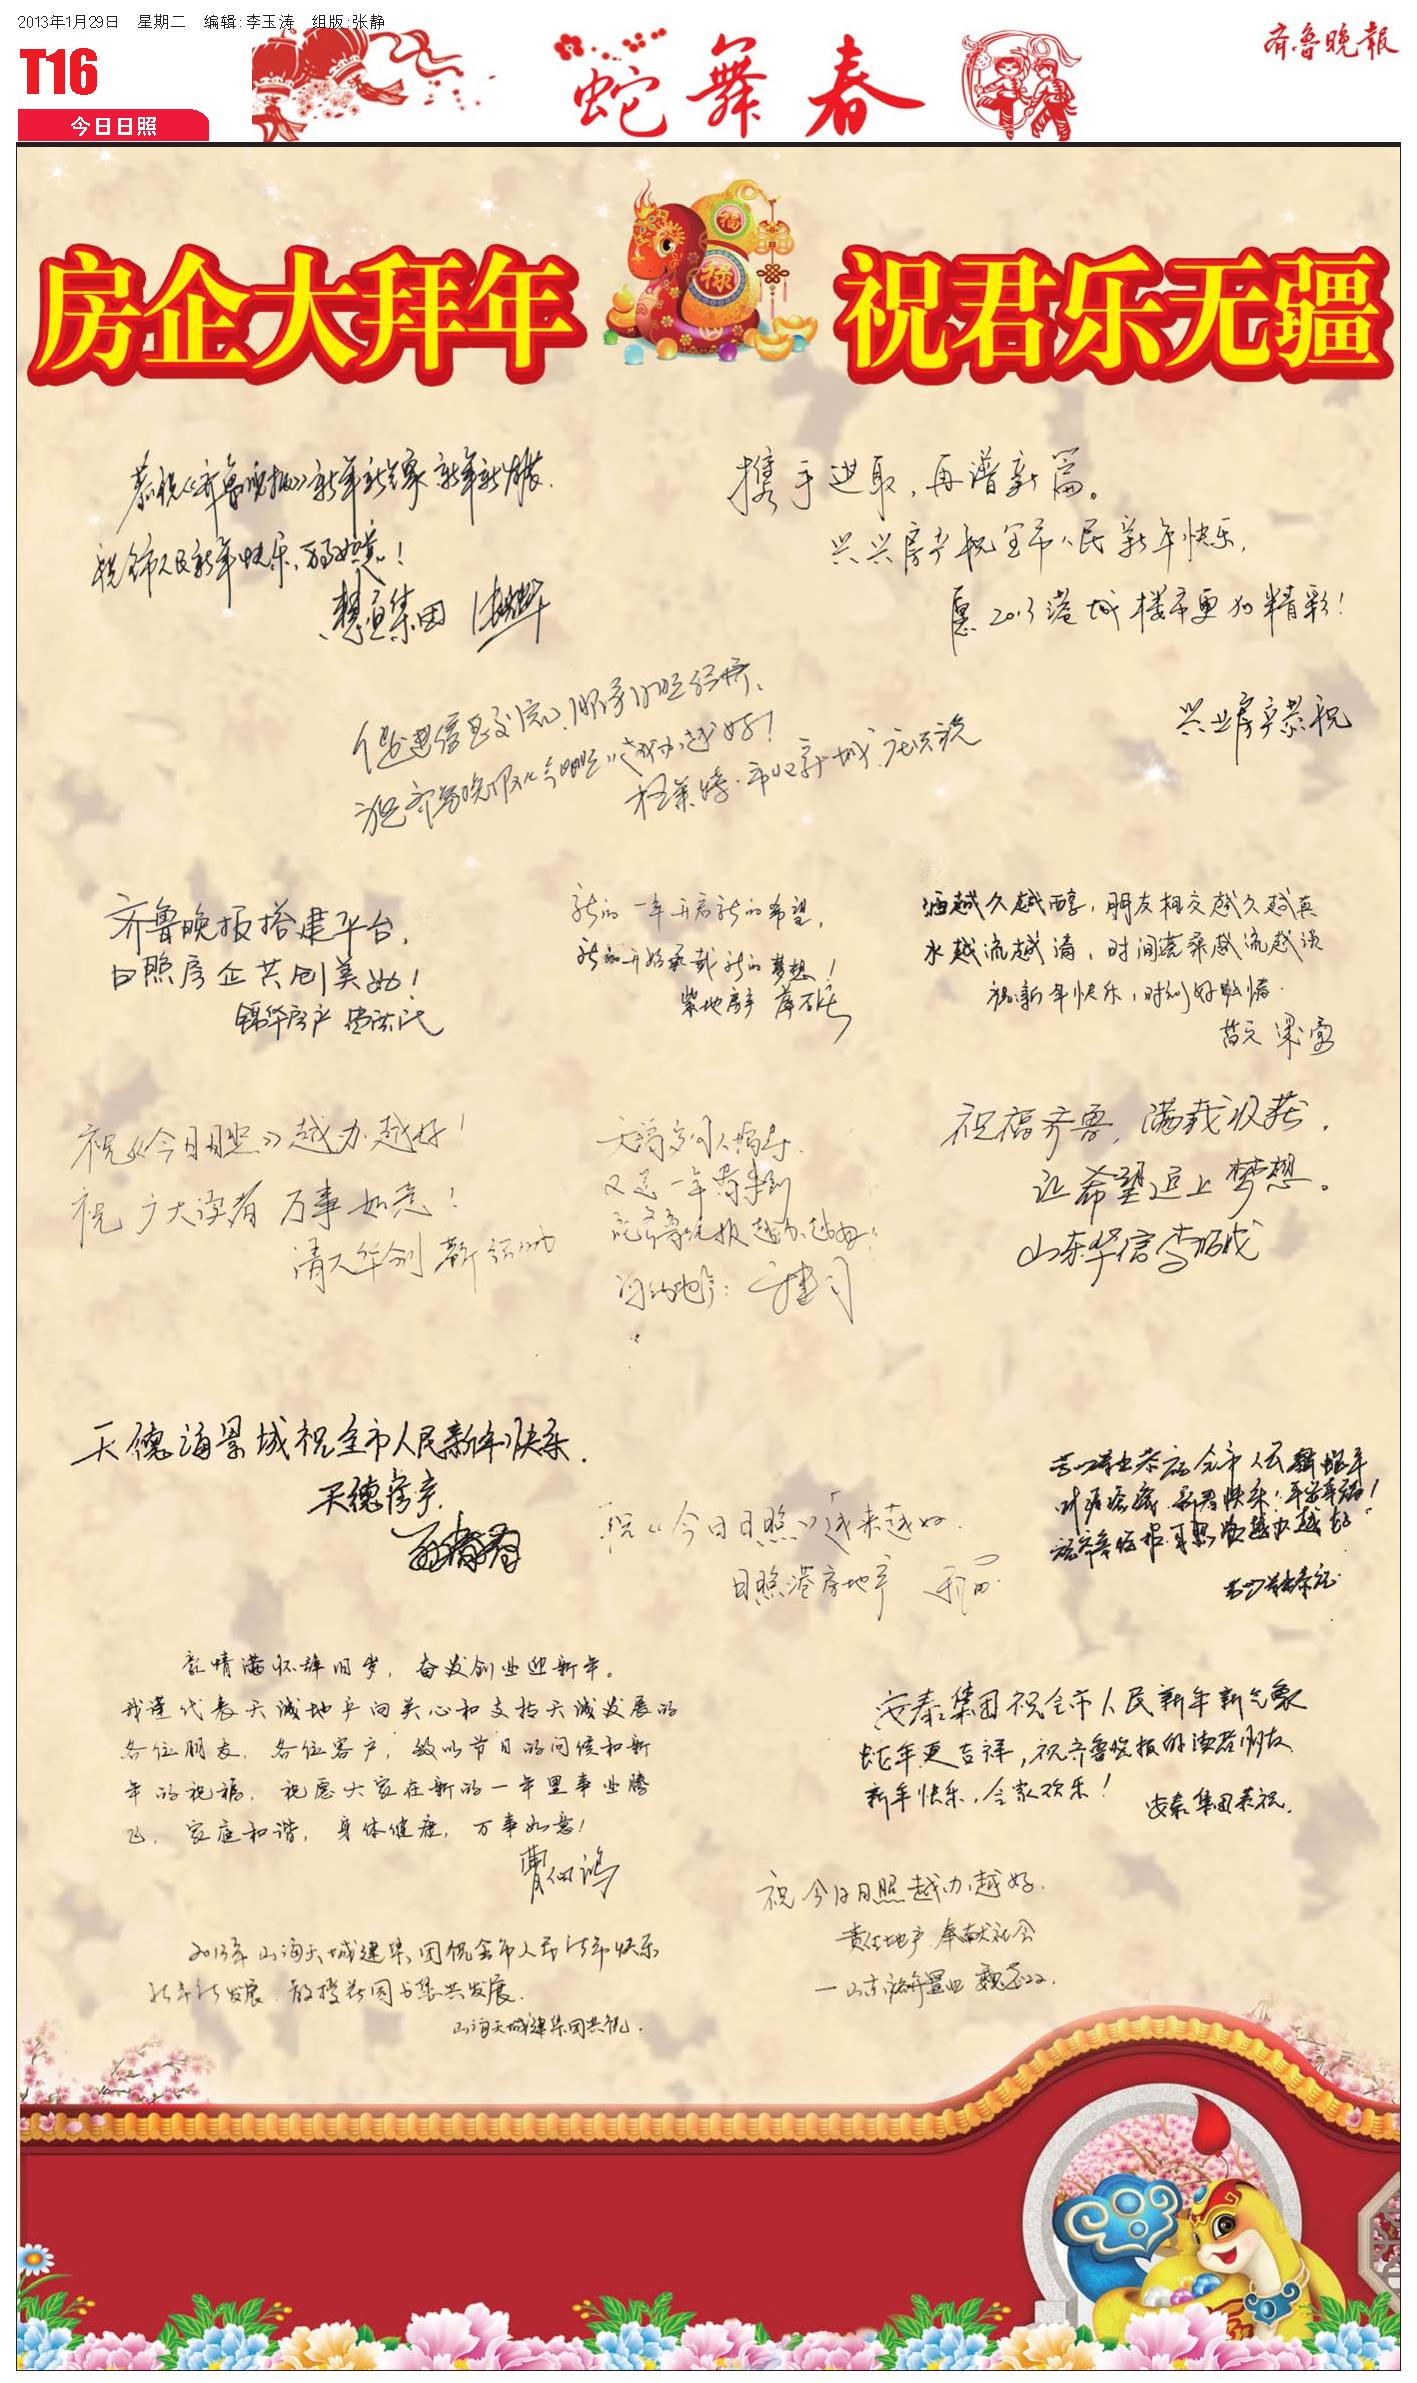 2013年1月29日 星期二 编辑:李玉涛 组版:张静
T16
今日日照
蛇舞春
齐鲁晚报
福
禄
房企大拜年 祝君乐无疆
恭祝《齐鲁晚报》新年新气象 新年新发展.
祝全市人民新年快乐,万事如意!
集团
携手进取,再谱新篇。
兴业房产祝全市人民新年快乐,
愿2013港城楼市更加精彩!
兴业房产恭祝
促进信息交流,服务日照经济,
祝齐鲁晚报《今日日照》越办越好!
齐鲁晚报搭建平台,
日照房企共创美好!
锦华房产
新的一年开启新的希望,
新的开始承载新的梦想!
紫地房产
酒越久越醇,朋友相交越久越真
水越流越清,时间沧桑越流越淡
祝新年快乐,时时好心情.
祝《今日日照》越办越好!
祝广大读者万事如意!
清大华创
又是一年春来到
祝齐鲁晚报越办越好!
祝福齐鲁,满载收获,
让希望追上梦想。
山东华信
天德海景城祝全市人民新年快乐.
天德房产
祝《今日日照》越来越好.
日照港房地产
恭祝全市人民新蛇年
新春快乐!
豪情满怀辞旧岁,奋发创业迎新年。
我谨代表天诚地产向关心和支持天诚发展的
各位朋友,各位客户,致以节日的问候和新
年的祝福,祝愿大家在新的一年里事业腾
飞,家庭和谐,身体健康,万事如意!
安泰集团祝全市人民新年新气象
蛇年更吉祥,祝齐鲁晚报的读者朋友
新年快乐,合家欢乐!
安泰集团恭祝.
祝今日日照越办越好.
责任地产 奉献社会
2013年山海天城建集团祝全市人民新年快乐
新年新发展
山海天城建集团共祝.